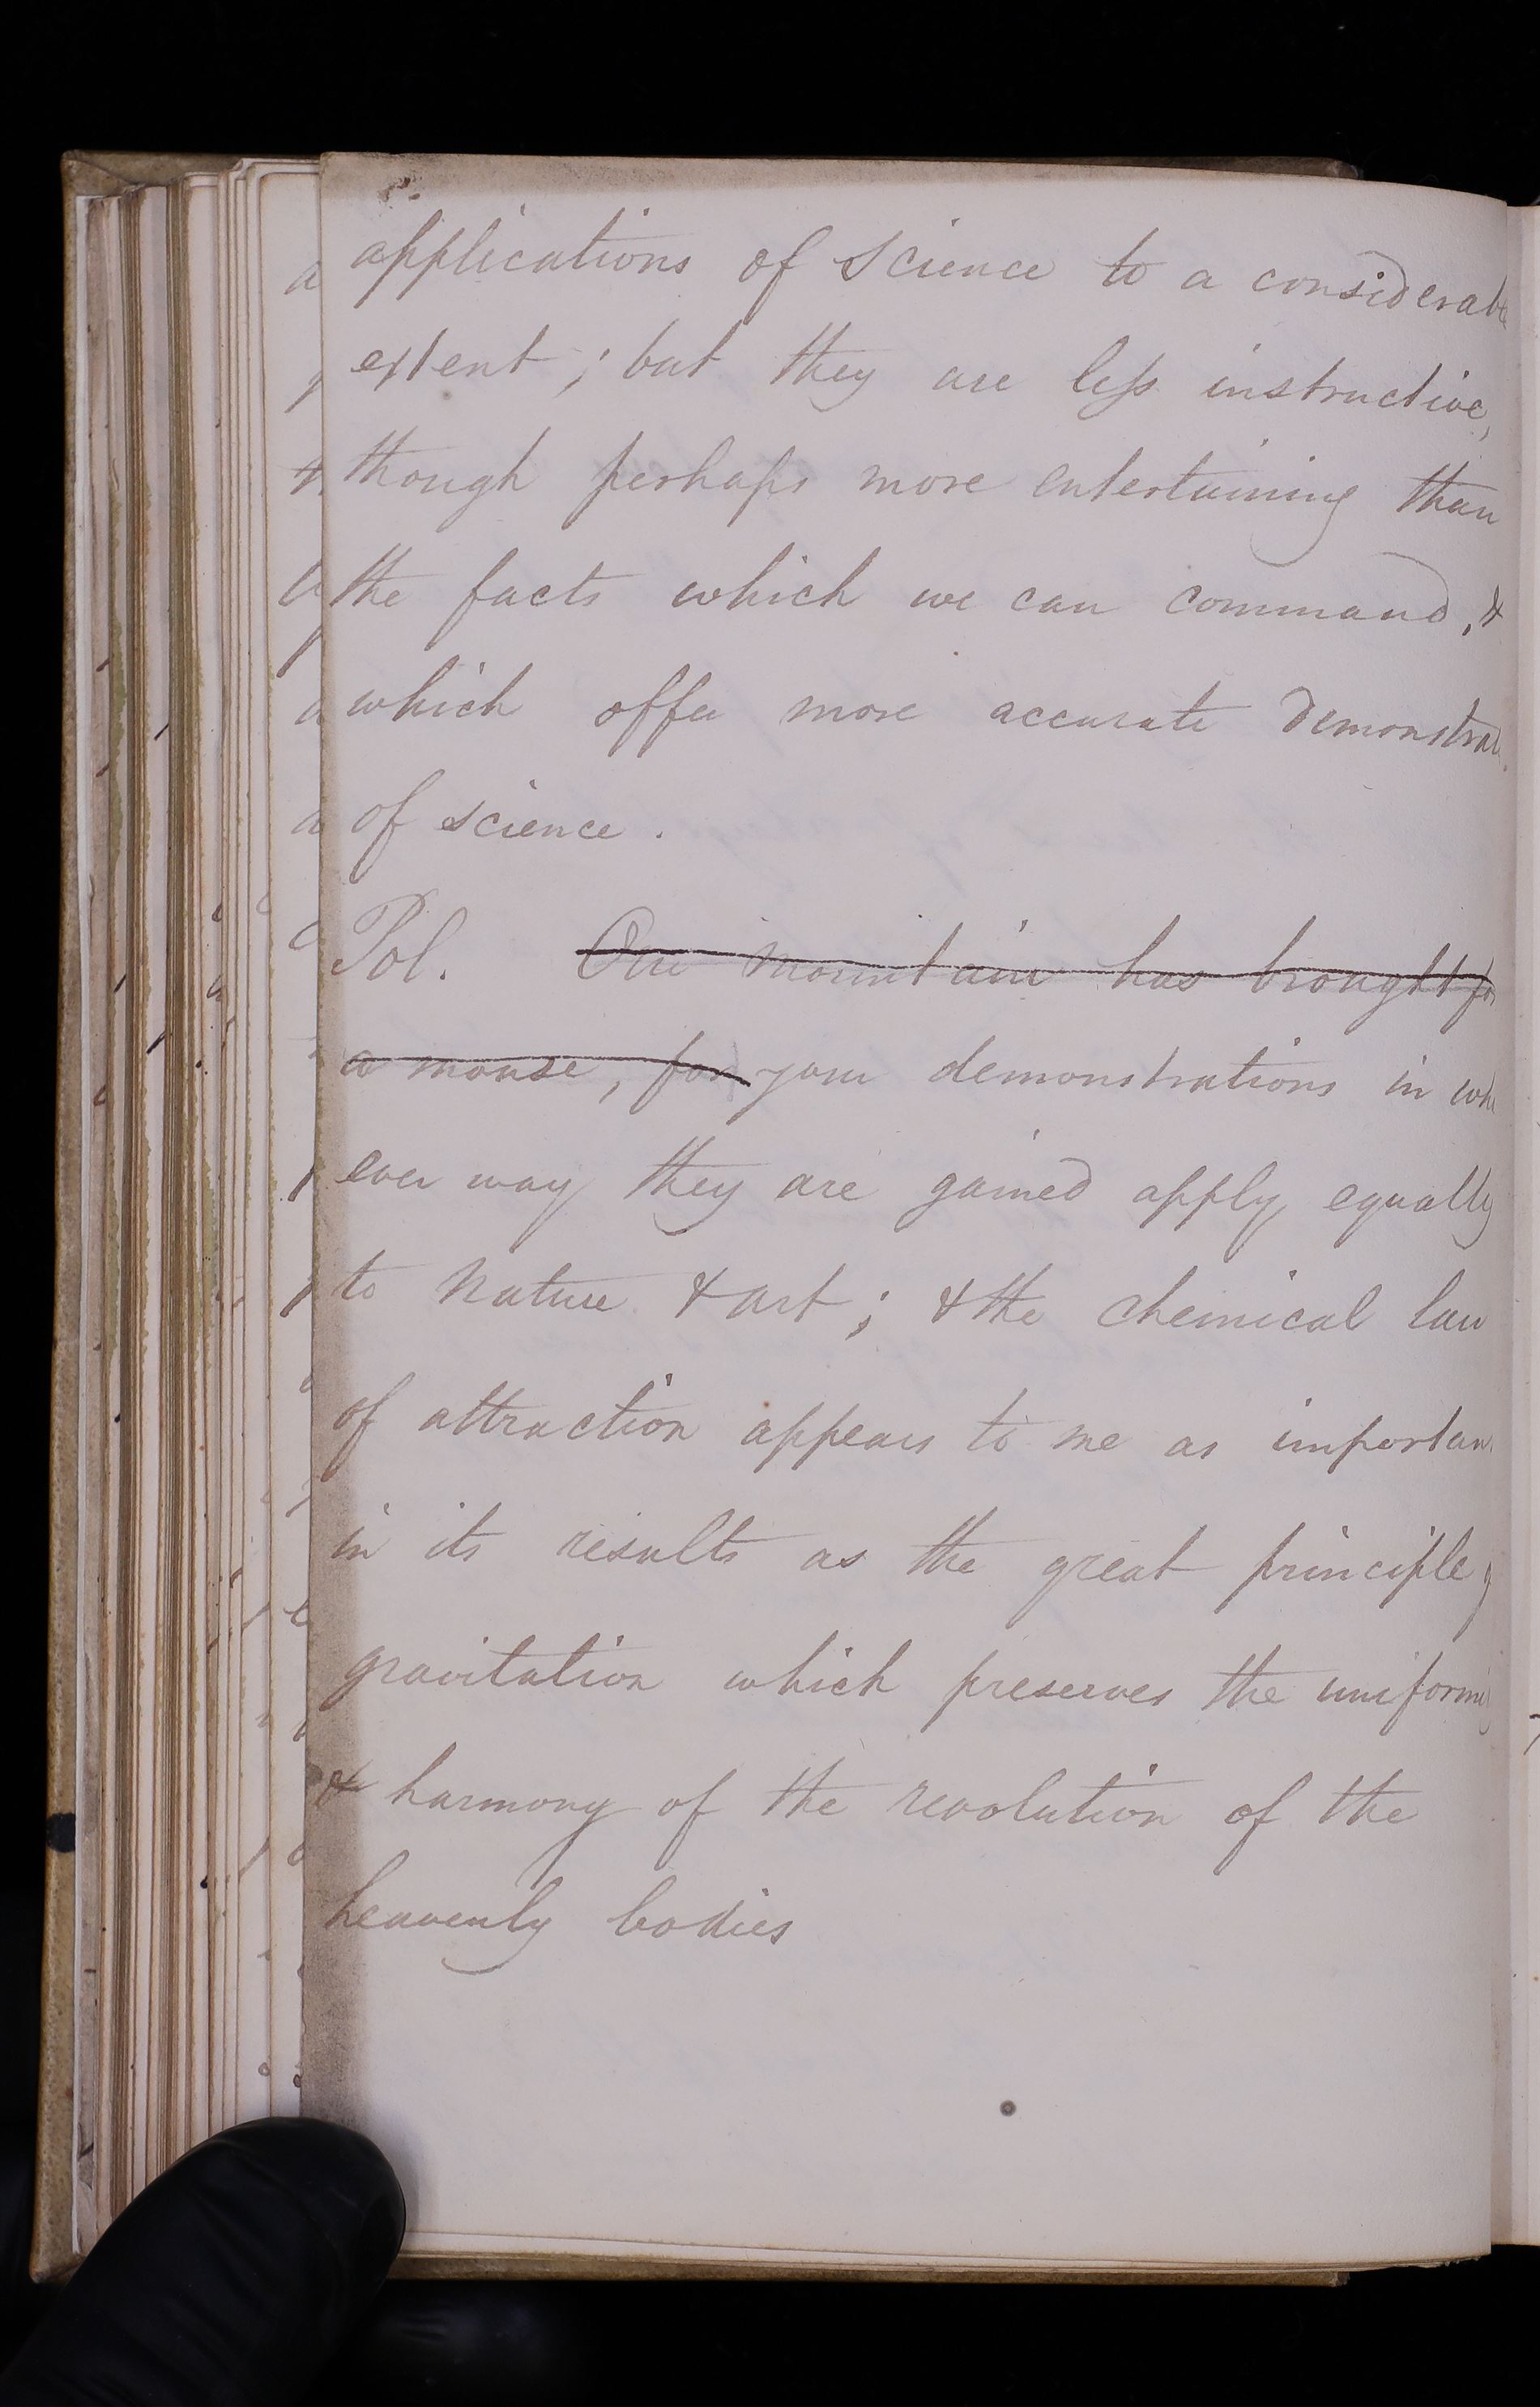 applications of science to a considerable
extent; but they are less instructive,
though perhaps more entertaining than
the facts which we can command, &
which offer more accurate demonstrat
of science.
Pol. Our mountain has brought for
a mouse, for your demonstrations in wh
ever way they are gained apply equally
to nature & art; & the chemical law
of attraction appears to me as importan
in its results as the great principle of
gravitation which preserves the uniformi
& harmony of the revolution of the
heavenly bodies